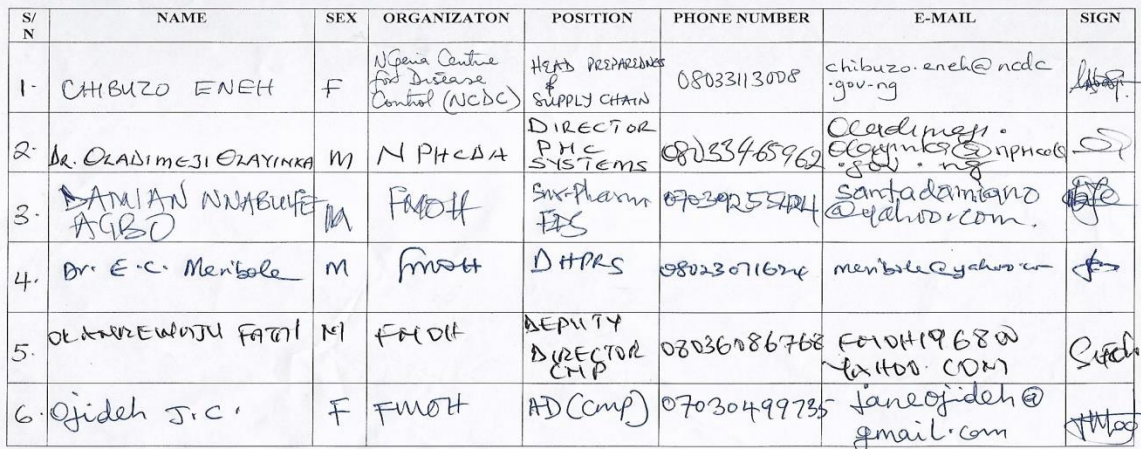 S/N NAME SEX ORGANIZATON POSITION PHONE NUMBER E-MAIL SIGN
1. CHIBUZO ENEH F Nigeria Centre for Disease Control (NCDC) HEAD PREPAREDNESS & SUPPLY CHAIN 08033113008 chibuzo.eneh@ncdc.gov.ng
2. DR. OLADIMEJI OLAYINKA M NPHCDA DIRECTOR PHC SYSTEMS 08033465962 .gov.ng
3. DAMIAN NNABUIFE AGBO M FMOH FDS santadamiano@yahoo.com.
4. Dr. E.C. Meribole M FMOH DHPRS 08023071624
5. M FMOH DEPUTY DIRECTOR CMP 08036086768
6. Ojideh J.C. F FMOH AD (cmp) 07030499735 janeojideh@gmail.com